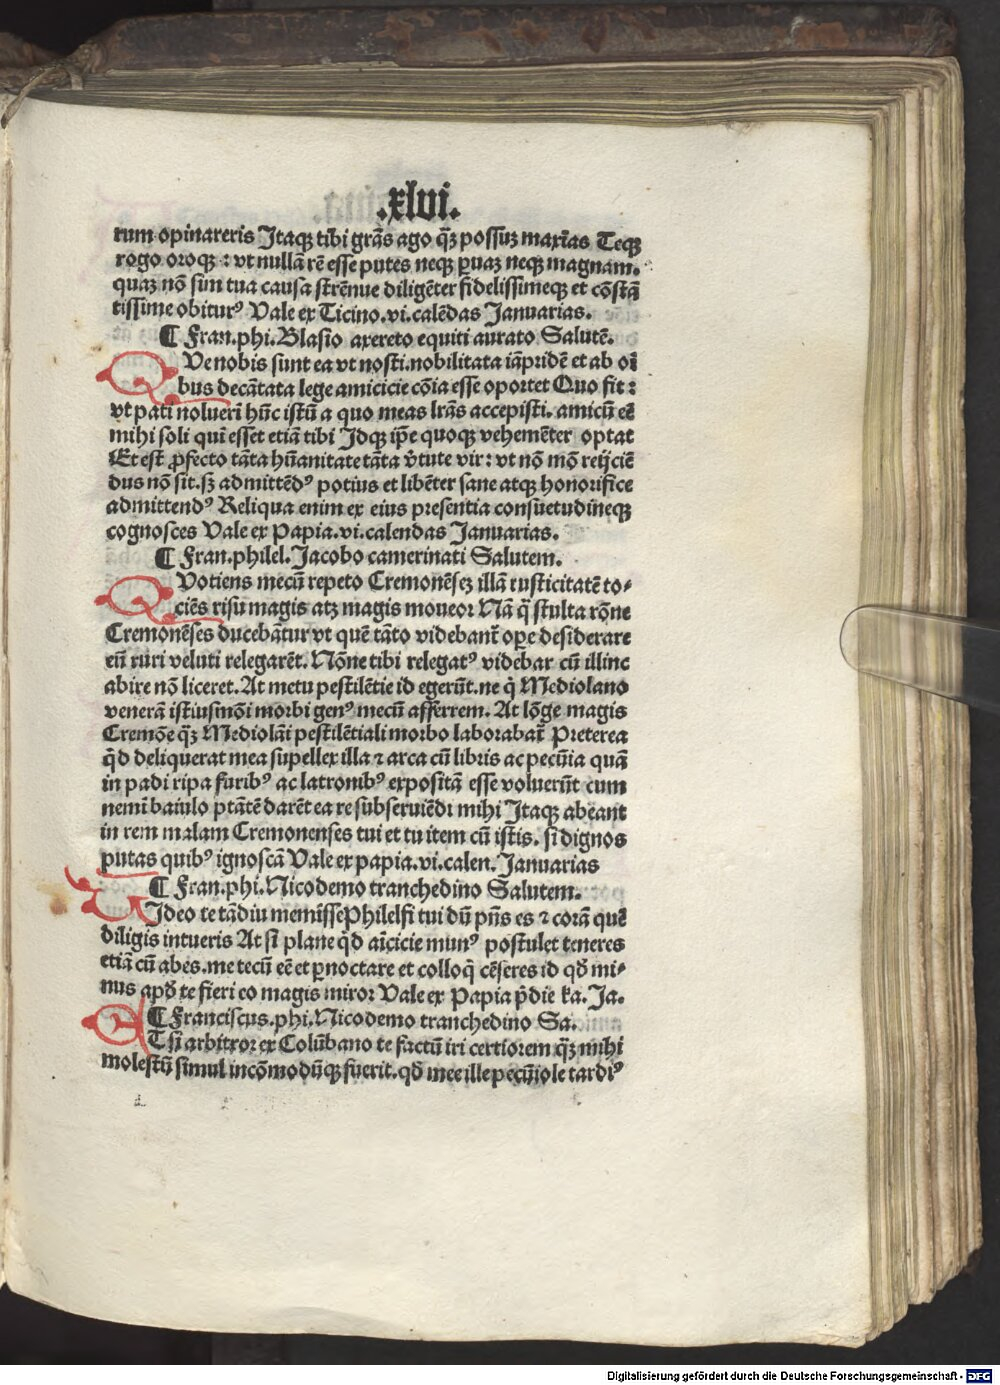 .xlvi.
rum opinareris Itaqꝫ tibi grãs ago q̃ꝫ possuꝫ maxīas Teqꝫ
rogo oroqꝫ : vt nullã rē esse putes neqꝫ ꝑuaꝫ neqꝫ magnam.
quaꝫ nõ sim tua causa strēnue diligēter fidelissimeqꝫ et cõstã
tissime obiturꝰ Vale ex Ticino.vi.calēdas Januarias.
¶ Fran.phi.Blasio axereto equiti aurato Salutē.
QVe nobis sunt ea vt nosti.nobilitata iãpridē et ab oī
bus decãtata lege amicicie cõia esse oportet Quo fit :
vt pati noluerī hūc istū a quo meas lrãs accepisti. amicū eē
mihi soli qui esset etiã tibi Idqꝫ ip̄e quoqꝫ vehemēter optat
Et est ꝓfecto tãta hūanitate tãta v̄tute vir : vt nõ mõ reijciē
dus nõ sit.sꝫ admittēdꝰ potius et libēter sane atqꝫ honorifice
admittendꝰ Reliqua enim ex eius presentia consuetudineqꝫ
cognosces Vale ex Papia.vi.calendas Januarias.
¶ Fran.philel.Jacobo camerinati Salutem.
QVotiens mecū repeto Cremonēseꝫ illã rusticitatē to-
ciēs risu magis atqꝫ magis moueor Nã q̄ stulta rõne
Cremonēses ducebãtur vt quē tãto videbant̄ oꝑe desiderare
eū ruri veluti relegarēt. Nõne tibi relegatꝰ videbar cū illinc
abire nõ liceret. At metu pestilētie id egerūt.ne q̄ Mediolano
venerã istiusmõi morbi genꝰ mecū afferrem. At lõge magis
Cremõe q̃ꝫ Mediolãi pestilētiali morbo laborabat̄ Preterea
q̇d deliquerat mea supellex illa ⁊ arca cū libris ac pecūia quã
in padi ripa furibꝰ ac latronibꝰ expositã esse voluerūt cum
nemī baiulo ptãtē darēt ea re subseruiēdi mihi Itaqꝫ abeant
in rem malam Cremonenses tui et tu item cū istis. si dignos
putas quibꝰ ignoscã Vale ex papia.vi.calen.Januarias
¶ Fran.phi.Nicodemo tranchedino Salutem.
VIdeo te tãdiu memisse Philelfi tui dū p̄ns es ⁊ corã quē
diligis intueris At si plane q̇d aīcicie munꝰ postulet teneres
etiã cū abes.me tecū eē et ꝑnoctare et colloq̄ cēseres id qd̄ mi-
nus apd̄ te fieri eo magis miror Vale ex Papia p̄die ka. Ja.
¶ Franciscus.phi.Nicodemo tranchedino Sa.
ETsi arbitror ex Colūbano te factū iri certiorem q̃ꝫ mihi
molestū simul incõmodūqꝫ fuerit.qd̄ mee ille pecūiole tardiꝰ
Digitalisierung gefördert durch die Deutsche Forschungsgemeinschaft - DFG